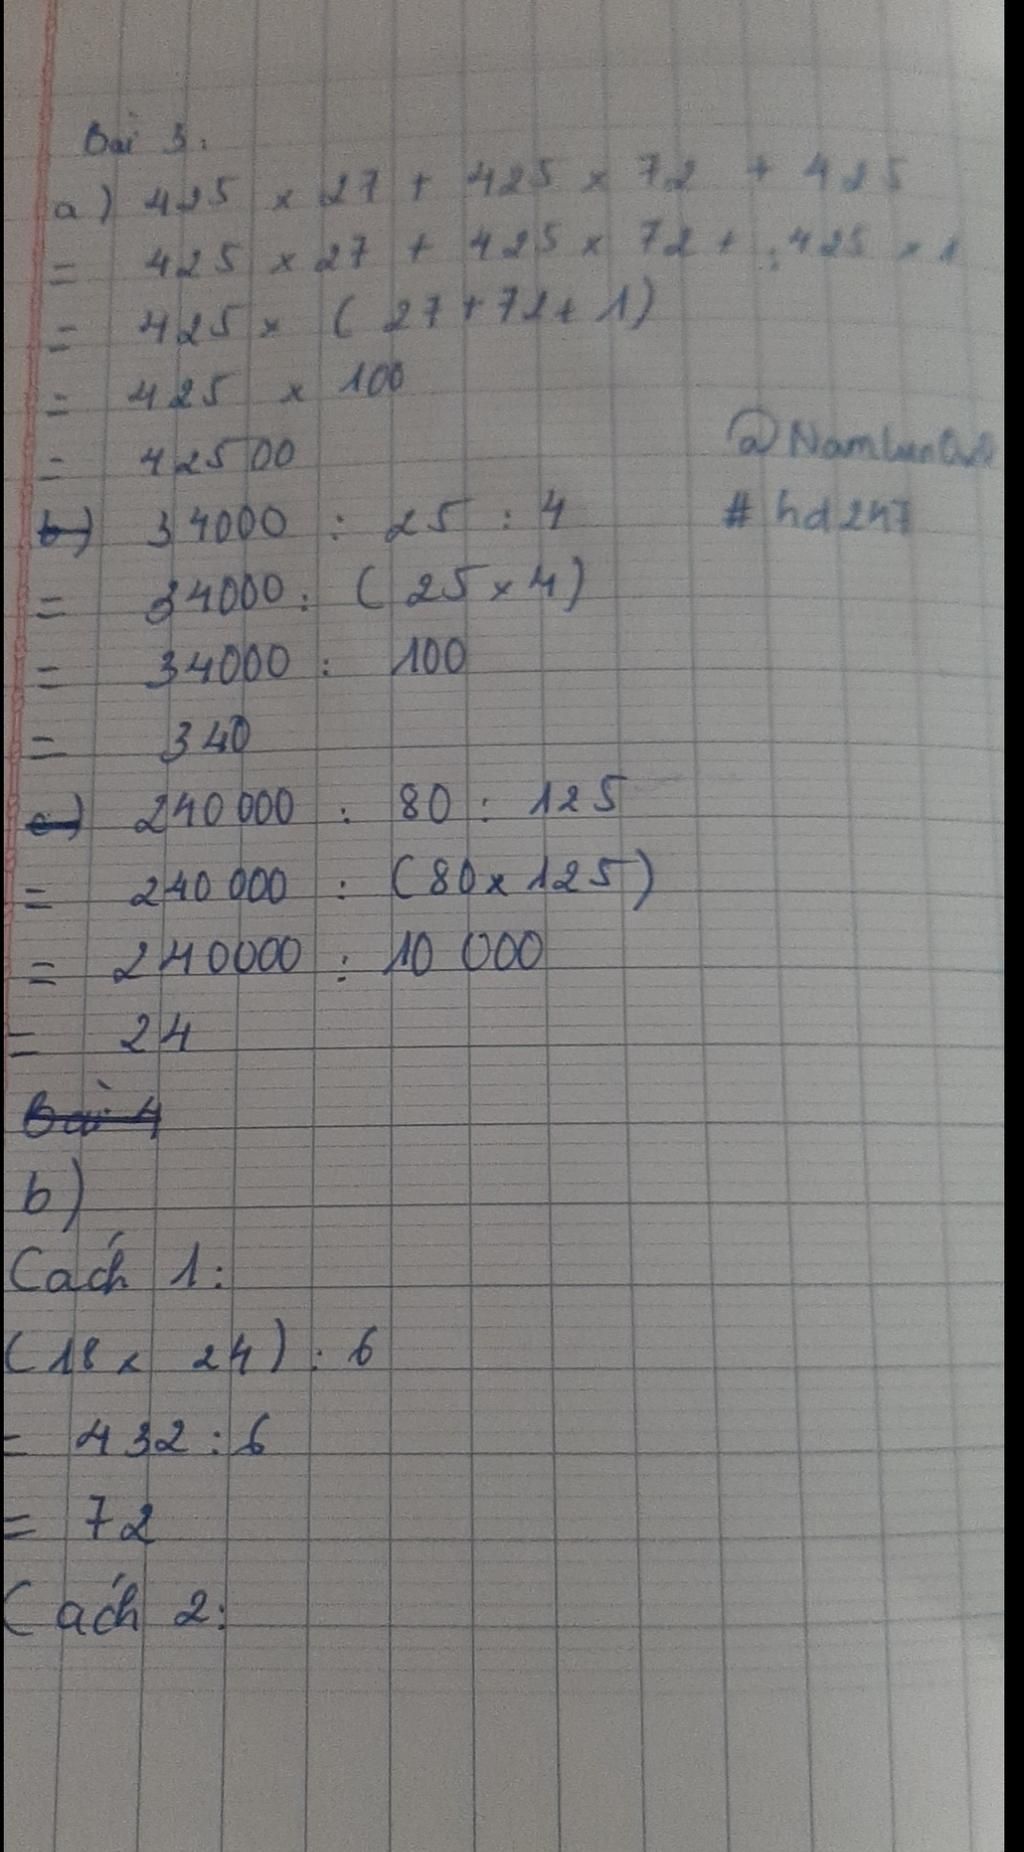 Bài 3:
a) 425 × 27 + 425 × 72 + 425
= 425 × 27 + 425 × 72 + 425 × 1
= 425 × ( 27 + 72 + 1 )
= 425 × 100
= 42500
@
# hd247
b) 34000 : 25 : 4
= 34000 : ( 25 × 4 )
= 34000 : 100
= 340
c) 240 000 : 80 : 125
= 240 000 : ( 80 × 125 )
= 240000 : 10 000
= 24
Bài 4
b)
Cách 1:
( 18 × 24 ) : 6
= 432 : 6
= 72
Cách 2: